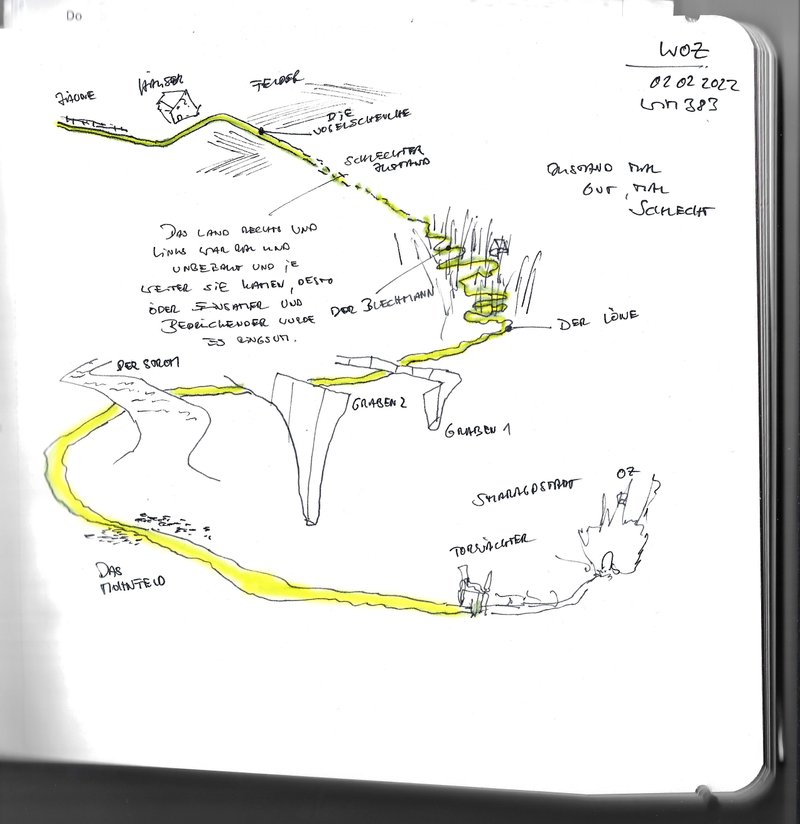 Do
WOZ
02 02 2022
ZÄUNE
HÄUSER
FELDER
DIE
VOGELSCHEUCHE
SCHLECHTER
ZUSTAND
ZUSTAND MAL
GUT, MAL
SCHLECHT
DAS LAND RECHTS UND
LINKS WAR KAHL UND
UNBEBAUT UND JE
WEITER SIE KAMEN, DESTO
ÖDER EINSAMER UND
BEDRÜCKENDER WURDE
ES RINGSUM.
DER BLECHMANN
DER LÖWE
DER STROM
GRABEN 2
GRABEN 1
SMARAGDSTADT
OZ
TORWÄCHTER
DAS
MOHNFELD